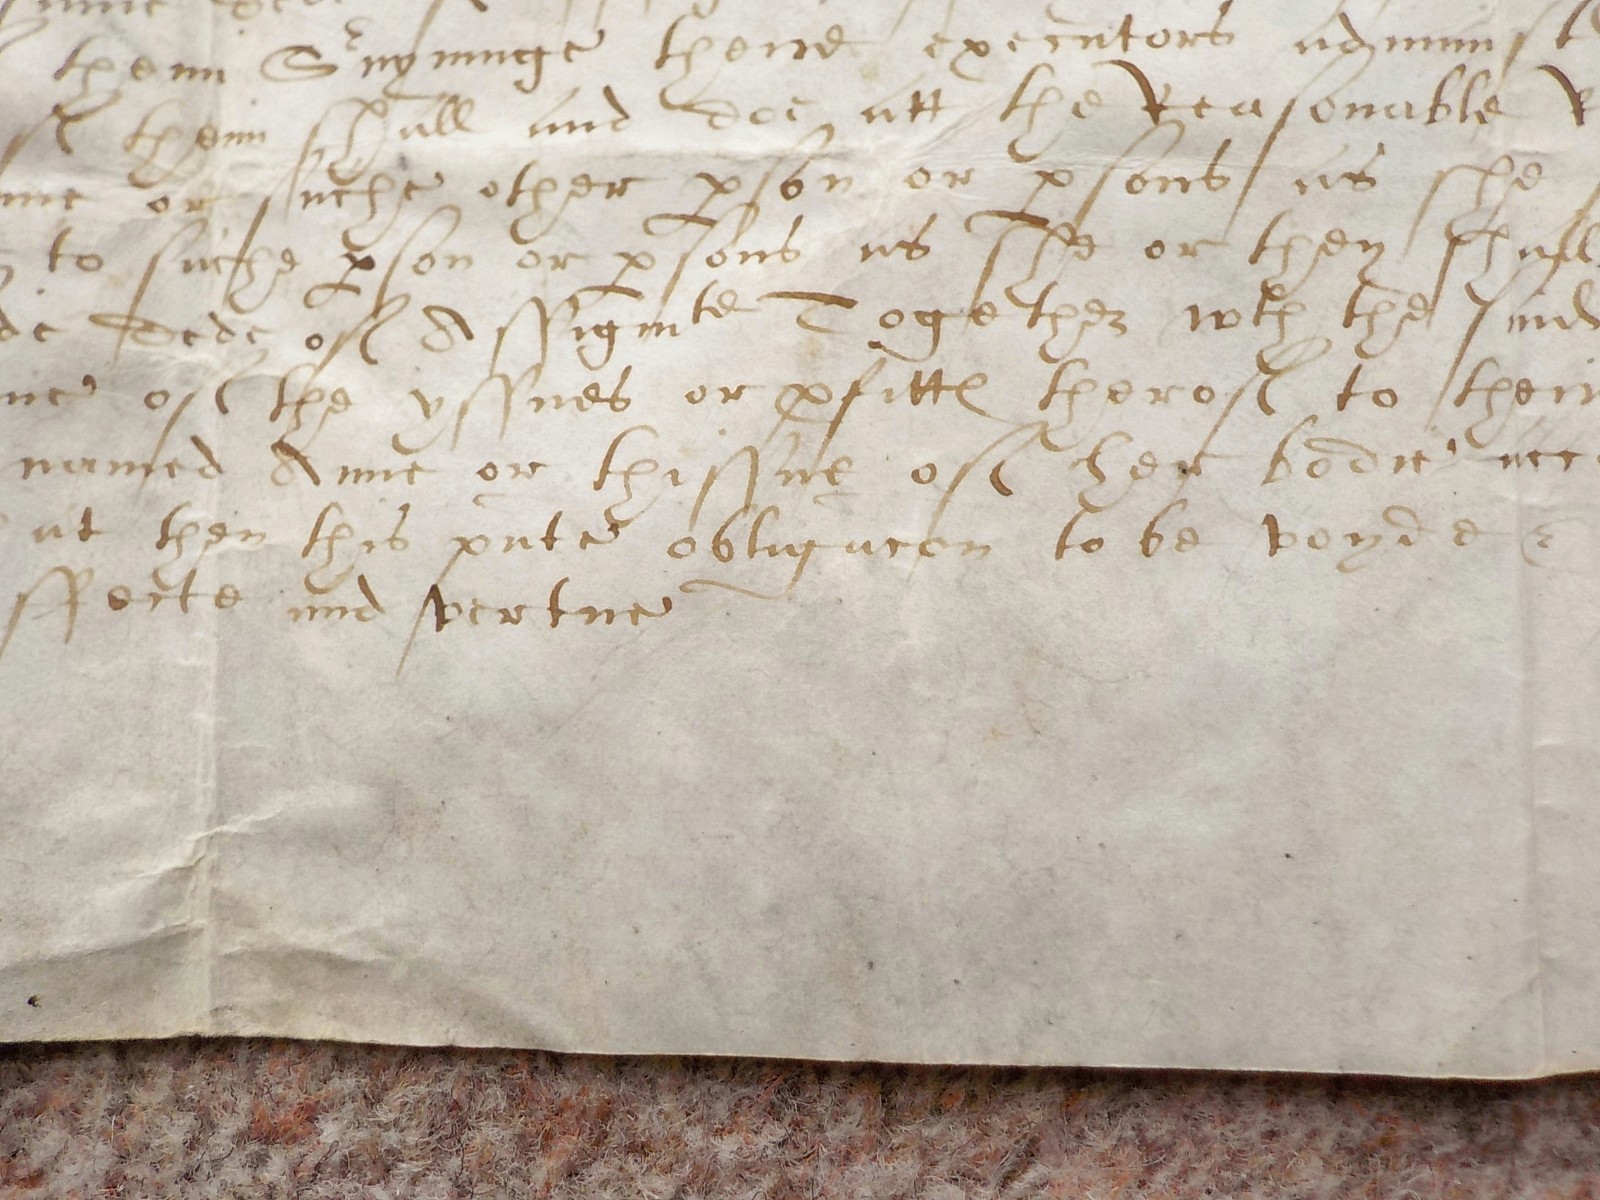 them Svyvinge theire executors administ
of them shall and doe att the Reasonable
or suche other pson or psons as she
to suche pson or psons as she or they shall
dede of Assignmte Together wth the said
of the yssues or pfitte therof to their
named Anne or thissue of her bodie acco
at then this pnte obligacon to be voyde
ffecte and vertue